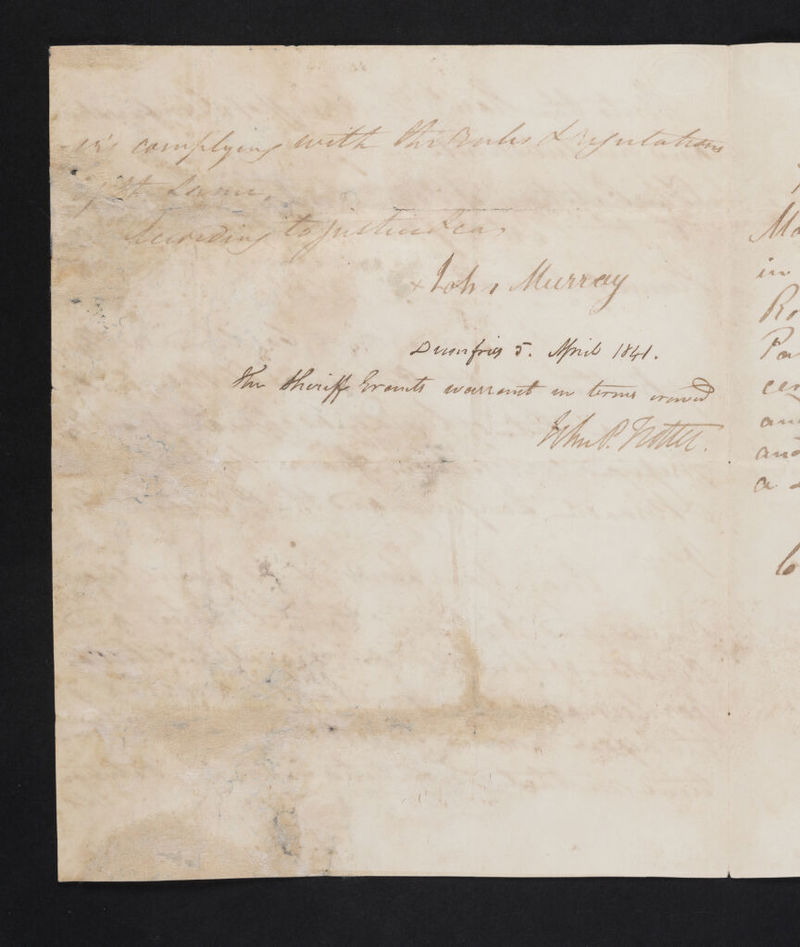 complying with the Rules & regulations
of the Same,
According to Justice &ca,
John Murray
Dumfries 5. April 1841.
The Sheriff Grants warrant in terms craved
John P. Trotter.
in
and
a